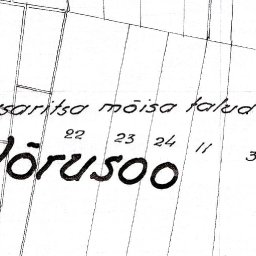 saritsa mõisa talud
22 23 24 11 3
Võrusoo